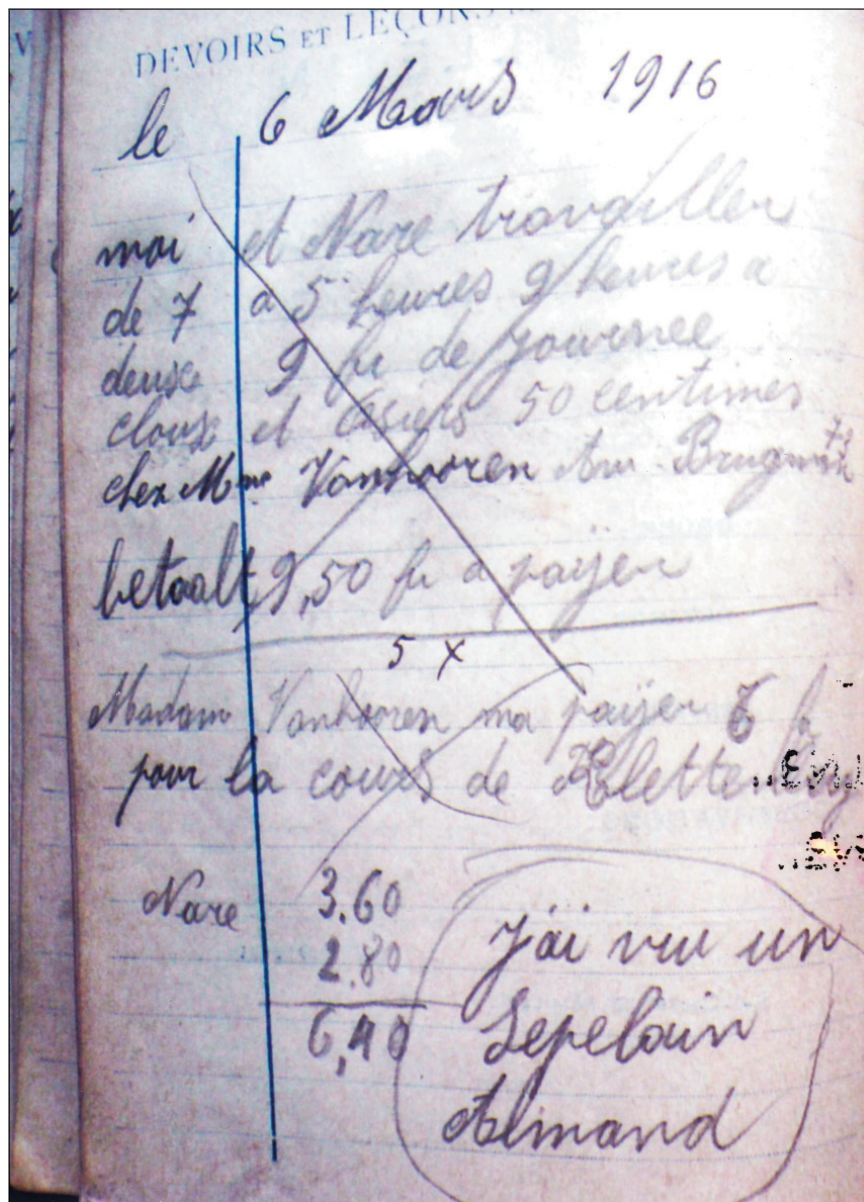 DEVOIRS ET LEÇONS
le 6 Mars 1916
moi et Nare travailler
de 7 a 5 heures 9 heures a
deux 9 fr de journee
cloux et 50 centimes
chez Mme Vanhooren Av. Brugman
betaalt 9,50 fr a paijer
5 x
Madam Vanhooren ma paijer 6 fr
pour la cours de
Nare 3.60
2.80
6,40
J'ai vu un
Sepelain
Almand